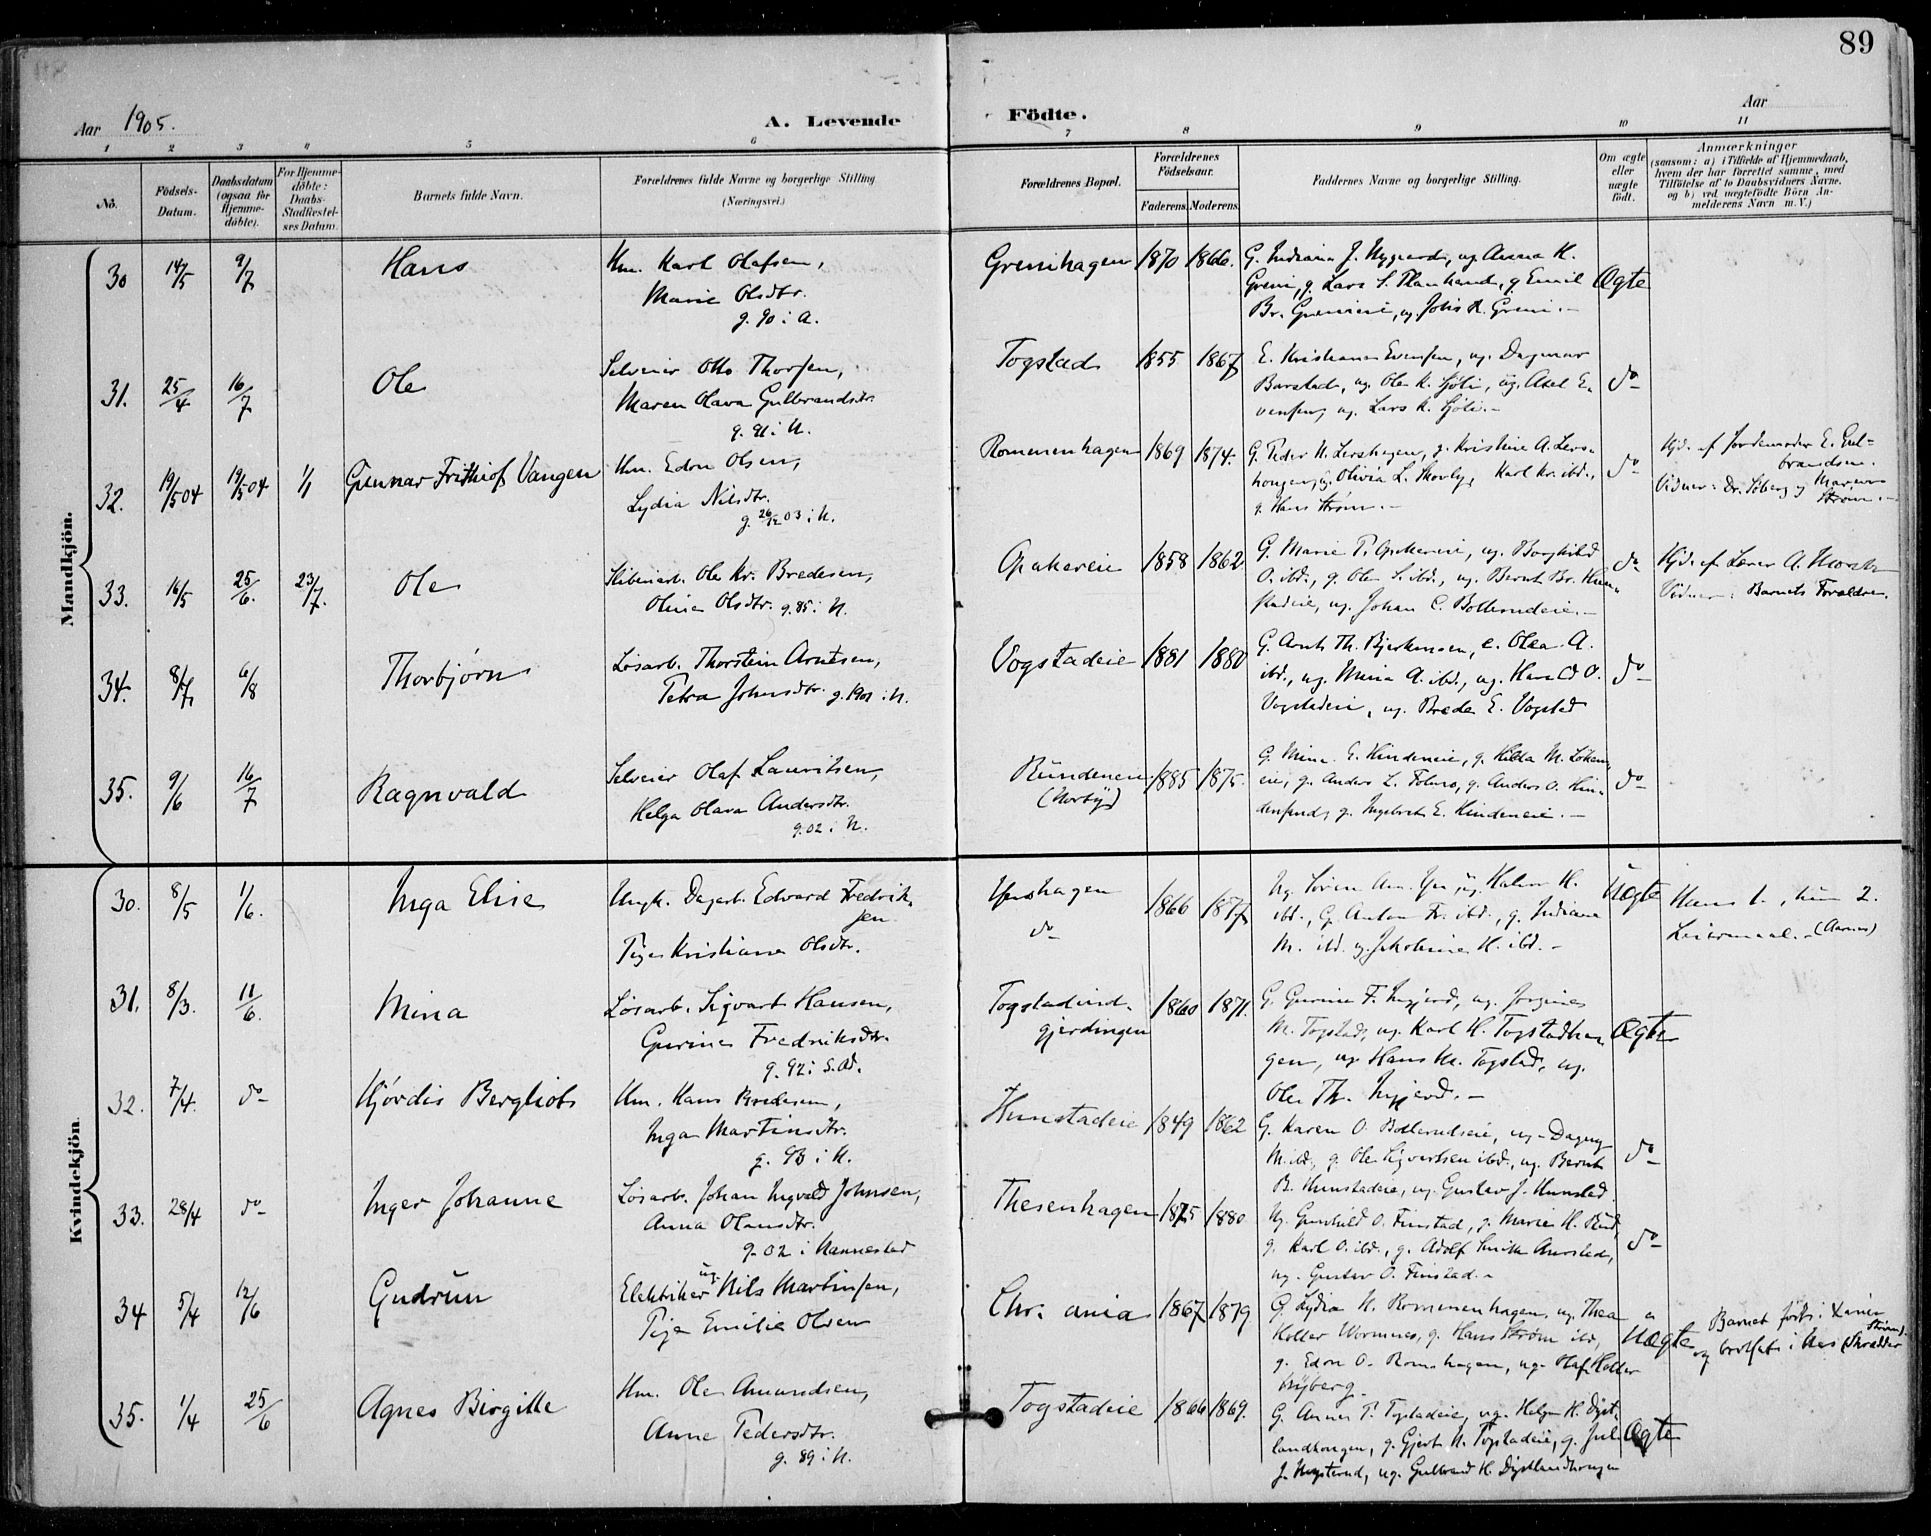 89
Aar 1905.
A. Levende Födte.
Aar
1 2 3 4 5 6 7 8 9 10 11
No.
Födsels-Datum.
Daabsdatum (ogsaa for Hjemme-döbte).
For Hjemme-döbte: Daabs-Stadfæstel-ses Datum.
Barnets fulde Navn.
Forældrenes fulde Navne og borgerlige Stilling (Næringsvei.)
Forældrenes Bopæl.
Forældrenes Födselsaar.
Faderens. Moderens.
Faddernes Navne og borgerlige Stilling.
Om ægte eller uægte födt.
Anmærkninger
(saasom: a) i Tilfælde af Hjemmedaab,
hvem der har forrettet samme, med
Tilföielse af to Daabsvidners Navne,
og b) ved uægtefödte Börn An-
melderens Navn m. V.)
Mandkjön.
30 14/5 9/7 Hans
Hm. Karl Olafsen,
Marie Olsdtr.
g. 90 i A.
Grenihagen 1870 1866.
Greni, g. Lars S.
Ægte
31. 25/4 16/7 Ole
Selveier Otto Thorsen,
Maren Olava Gulbrandsdtr.
g. 91 i N.
Togstad 1855 1867
E. Kristiane Evensen, ug. Dagmar
Barstad, ug. Ole K. Sjøli, ug. Axel E-
vensen, ug. Lars K. Sjøli. -
do
32. 19/5 04 19/5 04 1/1 Gunnar Frithiof Vangen
Hm. Edon Olsen,
Lydia Nilsdtr.
g. 26/12 03 i N.
Romenenhagen 1869 1874.
G. Peder N. Lershagen, g. Kristine A. Lers-
hagen, Olivia L. Skovly, Karl Kr. ibd.,
g. Hans Strøm. -
do
Hjd. af Jordemoder E. Gul-
brandsen.
Vidner: Dr. Soberg og
Strøm. -
33. 16/5 25/6. 23/7. Ole
Ole Kr. Bredesen,
Oline Olsdtr. g. 85 i N.
Opakereie 1858 1862
G. Marie P. Opakereie, ug. Borghild
O. ibd., g. Ole S. ibd., ug. Bernt Br. Hun-
stadeie, ug. Johan C. Bollerudeie. -
do
Hjd. af Lærer A.
Vidner: Barnets Forældre.
34. 8/7 6/8 Thorbjørn
Løsarb. Thorstein Arntsen,
Petra Johnsdtr. g. 1901 i N.
Vogstadeie 1881 1880
G. Arnt Th. e. Olea A.
ibd., ug. Mina A. ibd., ug. Harald O.
Vogstadeie, ug. Brede E. Vogstad
do
35. 9/6 16/7 Ragnvald
Selveier Olaf Lauritsen,
Helga Olava Andersdtr.
g. 02 i N.
Rundeneie 1885 1875.
(Norby)
G. Mina E. Hindeneie, g. Hilda M.
eie, g. Anders L. g. Anders O. Hin-
g. Ingebret E. Hindeneie. -
do
Kvindekjön.
30. 8/5 1/6. Inga Elise
Ungk. Dagarb. Edvard Fredrik-
sen
Pige Kristiane Olsdtr.
Ynshagen 1866 1877
do
ibd., G. Anton Fr. ibd., g. Indiane
M. ibd. ug. Jakobine H. ibd. -
Uægte
Hans 1., hun 2.
Leiermaal. - (Aarnes)
31. 8/3. 11/6. Mina
Løsarb. Sigvart Hansen,
Gurine Fredriksdtr.
g. 92 i S. Od.
Togstadeied- 1860 1871.
gjerdingen
G. Gurine F. ug. Jorgine
M. Togstad, ug. Karl H. Togstadha-
gen, ug. Hans M. Togstad, ug.
Ole Th.
Ægte
32. 7/4. do Hjördis Bergliot
Hm. Hans Bredesen,
Inga Martinsdtr.
g. 93 i N.
Hunstadeie 1849 1862
G. Karen O. Bollerudeie, ug. Dagny
M. ibd., g. Ole Sigvartsen ibd., ug. Bernt
B. Hunstadeie, ug. Gustav J. Hunstad
do
33. 28/4 do Inger Johanne
Løsarb. Johan Ingvald Johnsen,
Anna Olausdtr.
g. 02 i Nannestad
Thesenhagen 1875 1880
Ug. Gunhild O. Finstad, g. Marie H. Rud,
g. Karl O. ibd., g. Adolf
ug. Gustav O. Finstad. -
do
34 5/4 12/6 Gudrun
Elektriker ug. Nils Martinsen,
Pige Emilie Olsen
Chr. ania 1867 1879
G. Lydia N. Romenenhagen, ug. Thea
Holter Wormnes, g. Hans Strøm ibd,
g. Edon O. Romenhagen, ug. Olaf Holter
Nyberg.
Uægte
Barnet født i
og bortsat i Nes (Skrædder Strøm).
35. 1/4 25/6 Agnes Birgitte
Hm. Ole Amundsen,
Anne Pedersdtr.
g. 89 i N.
Togstadeie 1866 1869.
G. Anne P. Togstadeie, ug. Helga H. Dyst-
landhaugen, g. Gjert N. Togstadeie, g. Jul.
J. ug. Gulbrand H. Dystlandhaugen
Ægte